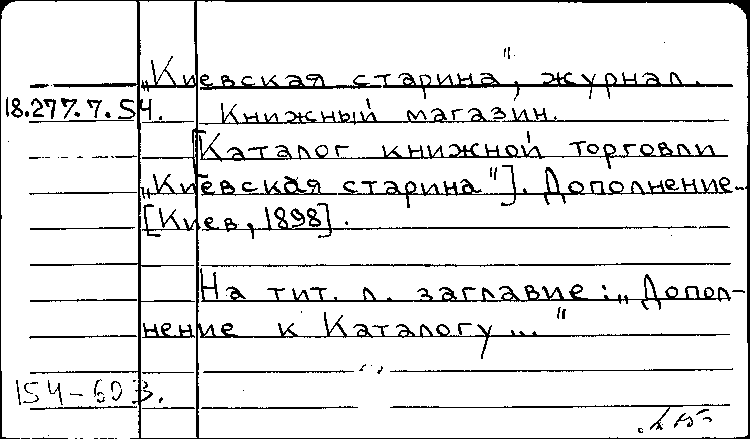 „Киевская старина", журнал.
18.277.7.54. Книжный магазин.
[Каталог книжной торговли
„Киевская старина"]. Дополнение...
[Киев, 1898].
На тит. л. заглавие: „Допол-
нение к Каталогу..."
154-603.